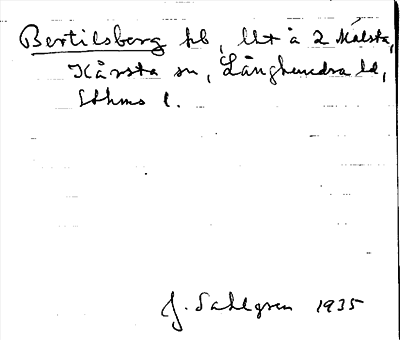 Bertilsberg hb, Ut å 2 Målsta,
Kårsta sn, Långhundra hd,
Sthms l.
J. Sahlgren 1935